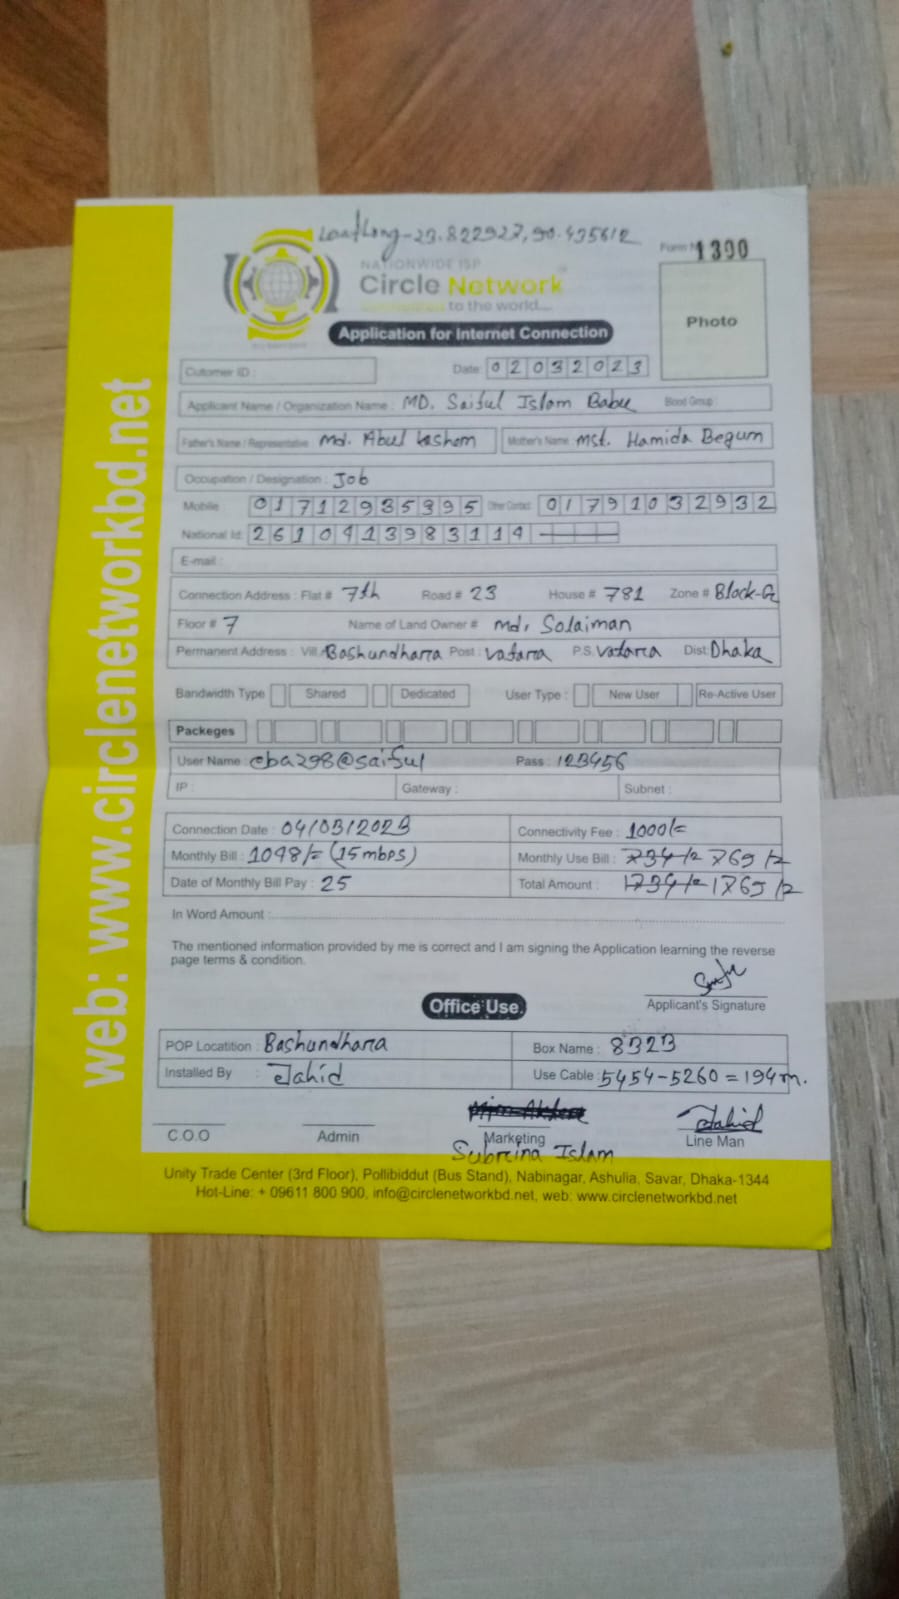 Lat/Long-23.822927, 90.435612
Form No 1390
NATIONWIDE ISP
Circle Network
to the world....
Photo
Application for Internet Connection
Cutomer ID :
Date: 02032023
Applicant Name / Organization Name : MD. Saiful Islam Babu Blood Group :
Father's Name / Representative Md. Abul Kashem Mother's Name Mst. Hamida Begum
Occupation / Designation : Job
Mobile : 01712935395 Other Contact: 01791032932
National Id: 2610413983114
E-mail :
Connection Address : Flat # 7th Road # 23 House # 781 Zone # Block-G
Floor # 7 Name of Land Owner # Md. Solaiman
Permanent Address : Vill: Bashundhara Post : Vatara P.S. Vatara Dist: Dhaka
Bandwidth Type Shared Dedicated User Type : New User Re-Active User
Packeges
User Name : cba298@saiful Pass : 123456
IP : Gateway : Subnet :
Connection Date : 04/03/2023 Connectivity Fee : 1000/=
Monthly Bill : 1098/= (15mbps) Monthly Use Bill : 734/= 765/=
Date of Monthly Bill Pay : 25 Total Amount : 1734/= 1765/=
In Word Amount :
The mentioned information provided by me is correct and I am signing the Application learning the reverse
page terms & condition.
Applicant's Signature
Office Use.
POP Locatition : Bashundhara Box Name : 832B
Installed By : Jahid Use Cable : 5454-5260 = 194m.
Jahid
C.O.O Admin Marketing Line Man
Subreina Islam
Unity Trade Center (3rd Floor), Pollibiddut (Bus Stand), Nabinagar, Ashulia, Savar, Dhaka-1344
Hot-Line: + 09611 800 900, info@circlenetworkbd.net, web: www.circlenetworkbd.net
web: www.circlenetworkbd.net